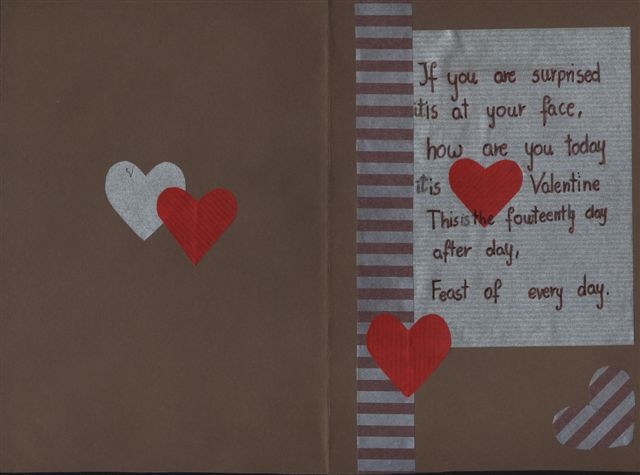 If you are surprised
it is at your face,
how are you today
it is Valentine
This is the fouteently day
after day,
Feast of every day.